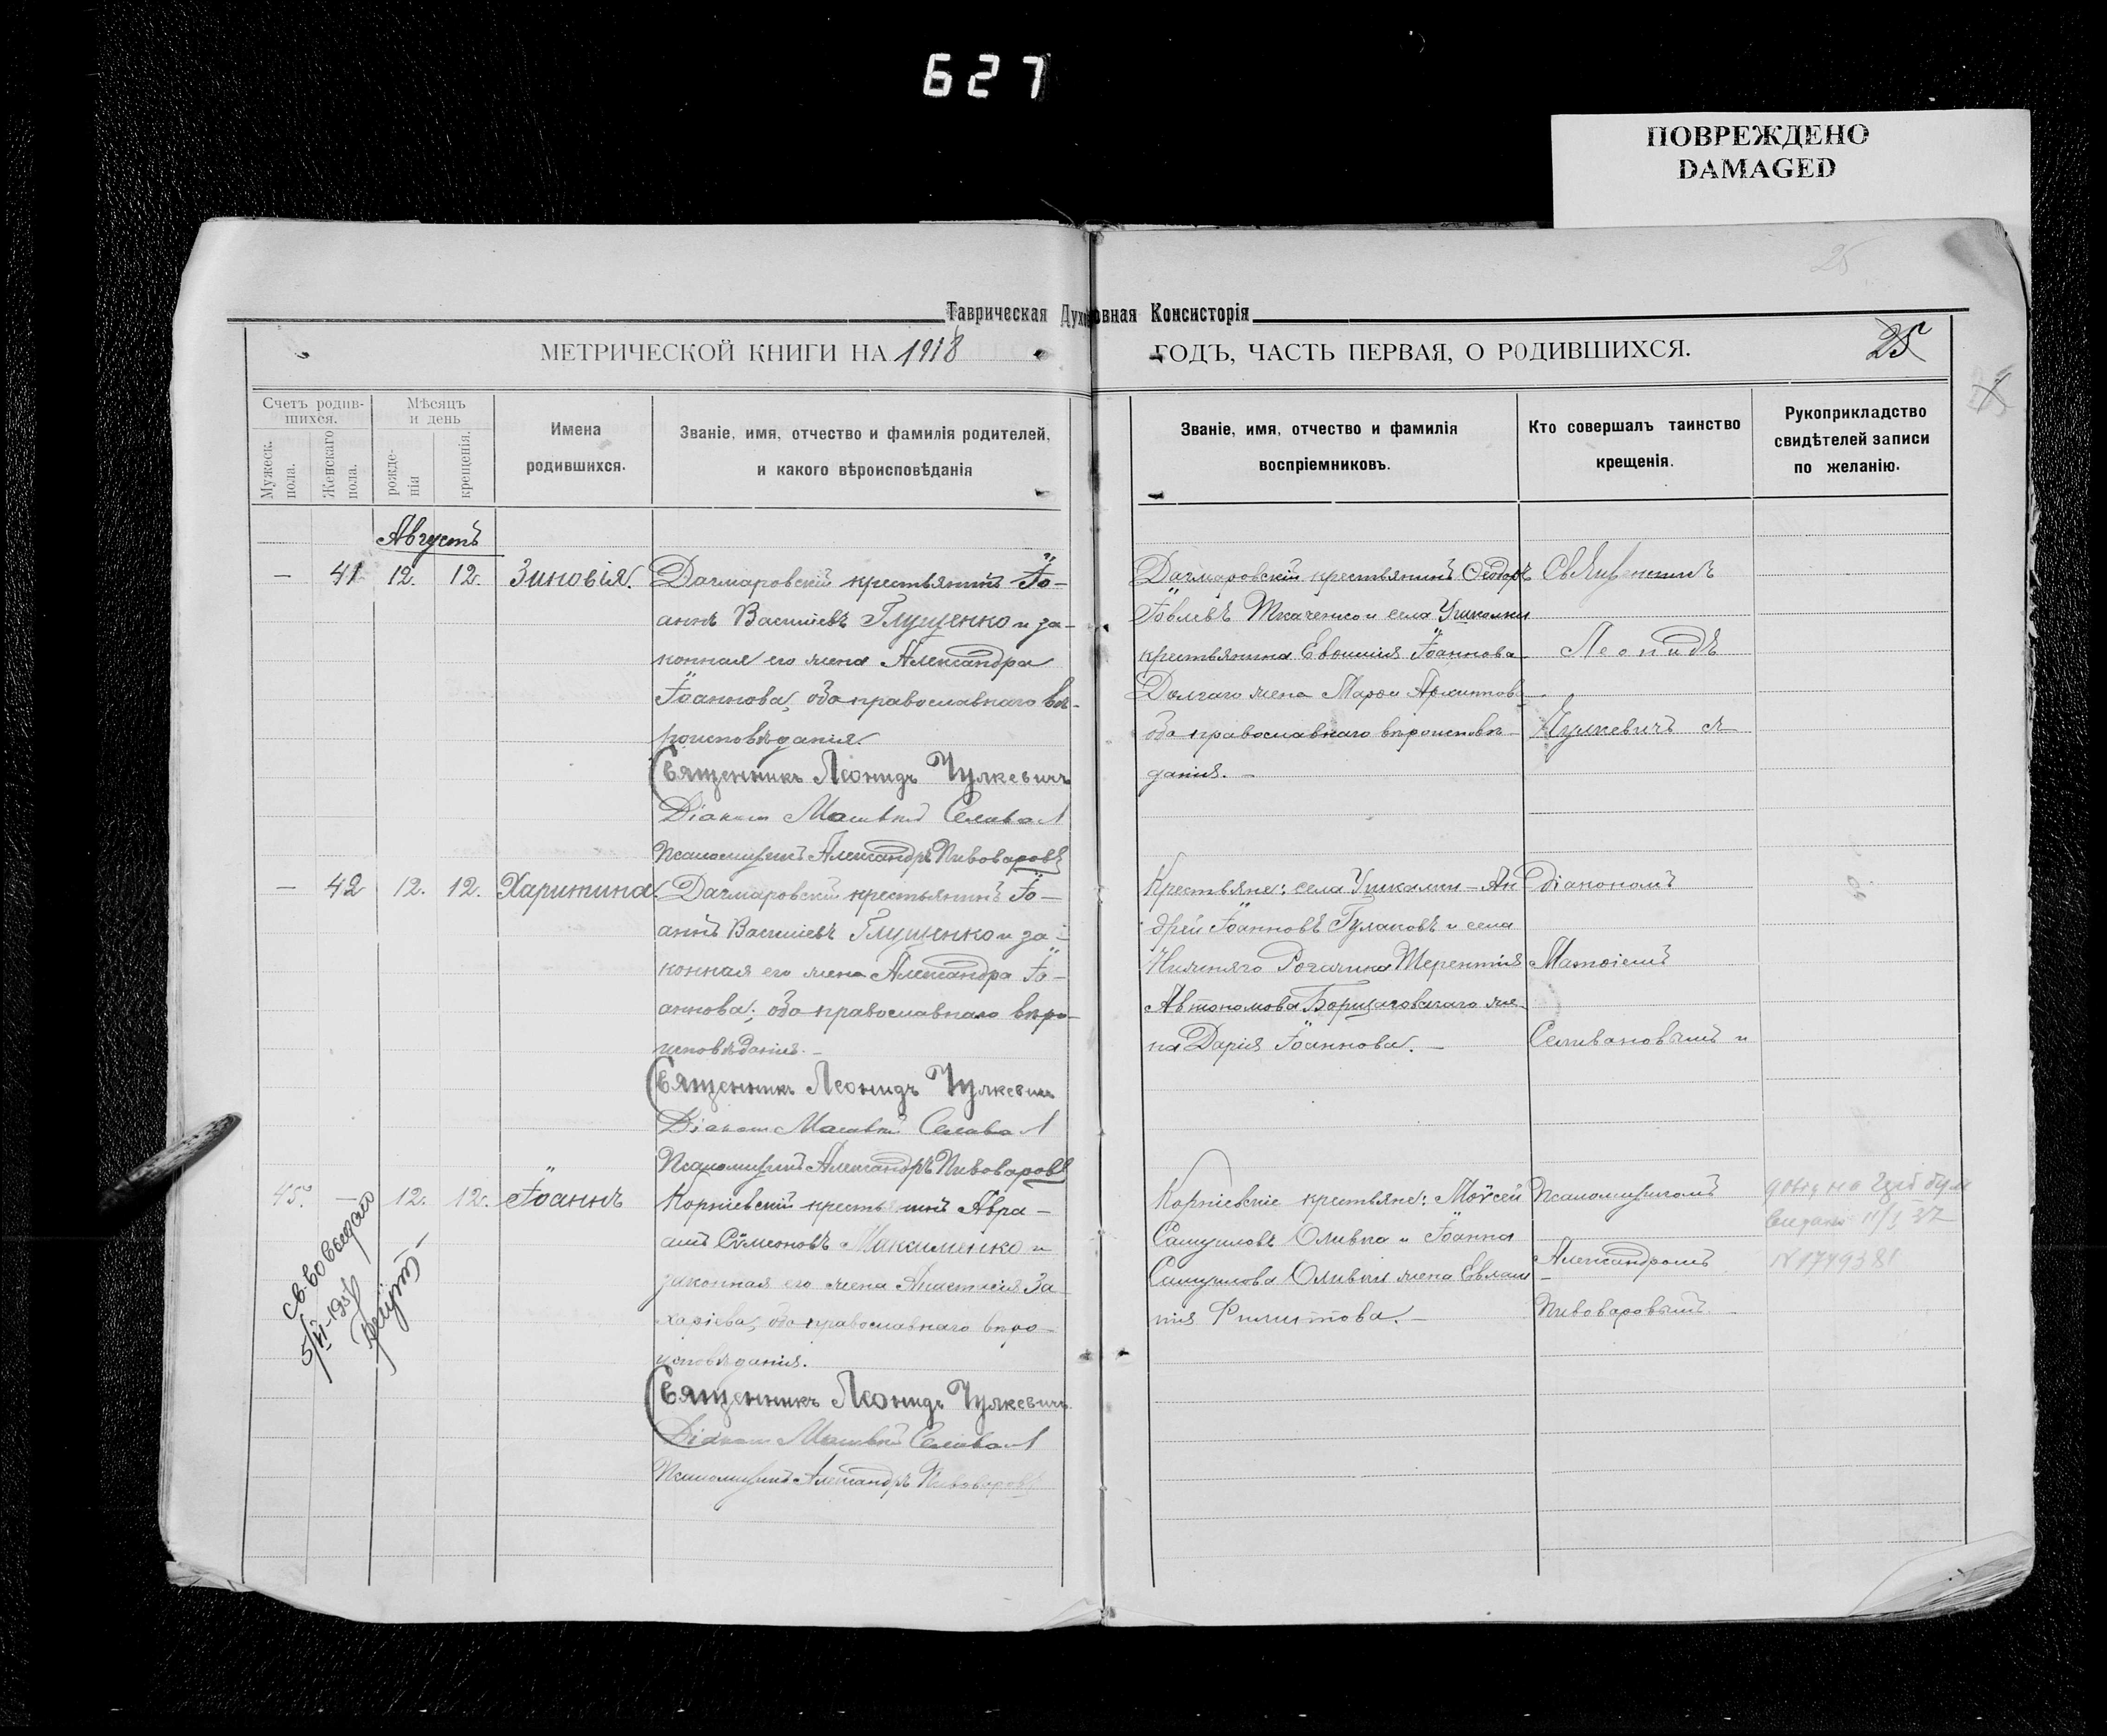 627
ПОВРЕЖДЕНО
DAMAGED
25
Таврическая Духовная Консисторія
МЕТРИЧЕСКОЙ КНИГИ НА 1918 ГОДЪ, ЧАСТЬ ПЕРВАЯ, О РОДИВШИХСЯ.
25
Счетъ родив-
шихся.
Мужеск.
пола.
Женскаго
пола.
Мѣсяцъ
и день
рожде-
нія
крещенія.
Имена
родившихся.
Званіе, имя, отчество и фамилія родителей,
и какого вѣроисповѣданія
Званіе, имя, отчество и фамилія
воспріемниковъ.
Кто совершалъ таинство
крещенія.
Рукоприкладство
свидѣтелей записи
по желанію.
Августъ
— 41 12. 12. Зиновія.
Дагмаровскій крестьянинъ Іо-
аннъ Васильевъ Глущенко и за-
конная его жена Александра
Іоаннова, оба православнаго вѣ-
роисповѣданія.
Священникъ Леонидъ Чулкевичъ
Діаконъ
Псаломщикъ Александръ Пивоваровъ
Дагмаровскій крестьянинъ Ѳеодоръ
Іовлевъ Ткаченко и села Ушкалки
крестьянина Евѳимія Іоаннова
Долгаго жена Марѳа
оба православнаго вѣроисповѣ-
данія. —
Священникъ
Леонидъ
Чулкевичъ с
— 42 12. 12. Харитина.
Дагмаровскій крестьянинъ Іо-
аннъ Васильевъ Глущенко и за-
конная его жена Александра Іо-
аннова; оба православнаго вѣро-
исповѣданія. —
Священникъ Леонидъ Чулкевичъ
Діаконъ
Псаломщикъ Александръ Пивоваровъ
Крестьяне: села Ушкалки — Ан-
дрей Іоанновъ Гулаковъ и села
Нижняго Рогачика Терентія
Автономова Борщаговскаго же-
на Дарія Іоаннова. —
діакономъ
Матѳіемъ
Селивановымъ и
45. — 12. 12. Іоаннъ
Корніевскій крестьянинъ Авра-
амъ Сѵмеоновъ Максименко и
законная его жена Анастасія За-
харіева, оба православнаго вѣро-
исповѣданія.
Священникъ Леонидъ Чулкевичъ
Діаконъ
Псаломщикъ Александръ Пивоваровъ
Корніевскіе крестьяне: Моѵсей
Самуиловъ Оливка и Іоанна
Самуилова Оливки жена Евлам-
пія Филиппова. —
Псаломщикомъ
Александромъ
Пивоваровымъ. —
выдано 11/I 37
N 1749381
Св-во выдано
5/VI-195